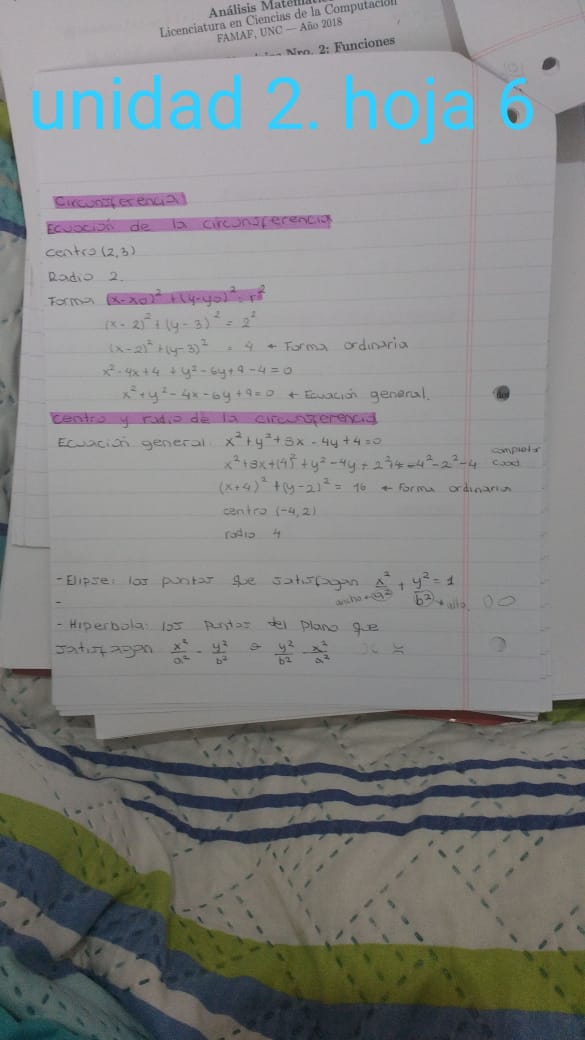 Análisis Matemátic
Licenciatura en Ciencias de la Computación
FAMAF, UNC — Año 2018
Nro. 2: Funciones
unidad 2. hoja 6
Circunsferencia
Ecuación de la circunsferencia
centro (2,3)
Radio 2.
Forma (x-x0)² + (y-y0)² = r²
(x-2)² + (y-3)² = 2²
(x-2)² + (y-3)² = 4 ← Forma ordinaria
x² - 4x + 4 + y² - 6y + 9 - 4 = 0
x² + y² - 4x - 6y + 9 = 0 ← Ecuación general.
centro y radio de la circunsferencia
Ecuación general: x² + y² + 8x - 4y + 4 = 0
completar
x² + 8x + (4)² + y² - 4y + 2² + 4 = 4² - 2² - 4 cuad
(x+4)² + (y-2)² = 16 ← Forma ordinaria
centro (-4,2)
radio 4
- Elipse: los puntos que satisfagan x²/a² + y²/b² = 1
ancho ← → alto
-
- Hiperbola: los puntos del plano que
satisfagan x²/a² - y²/b² o y²/b² - x²/a²